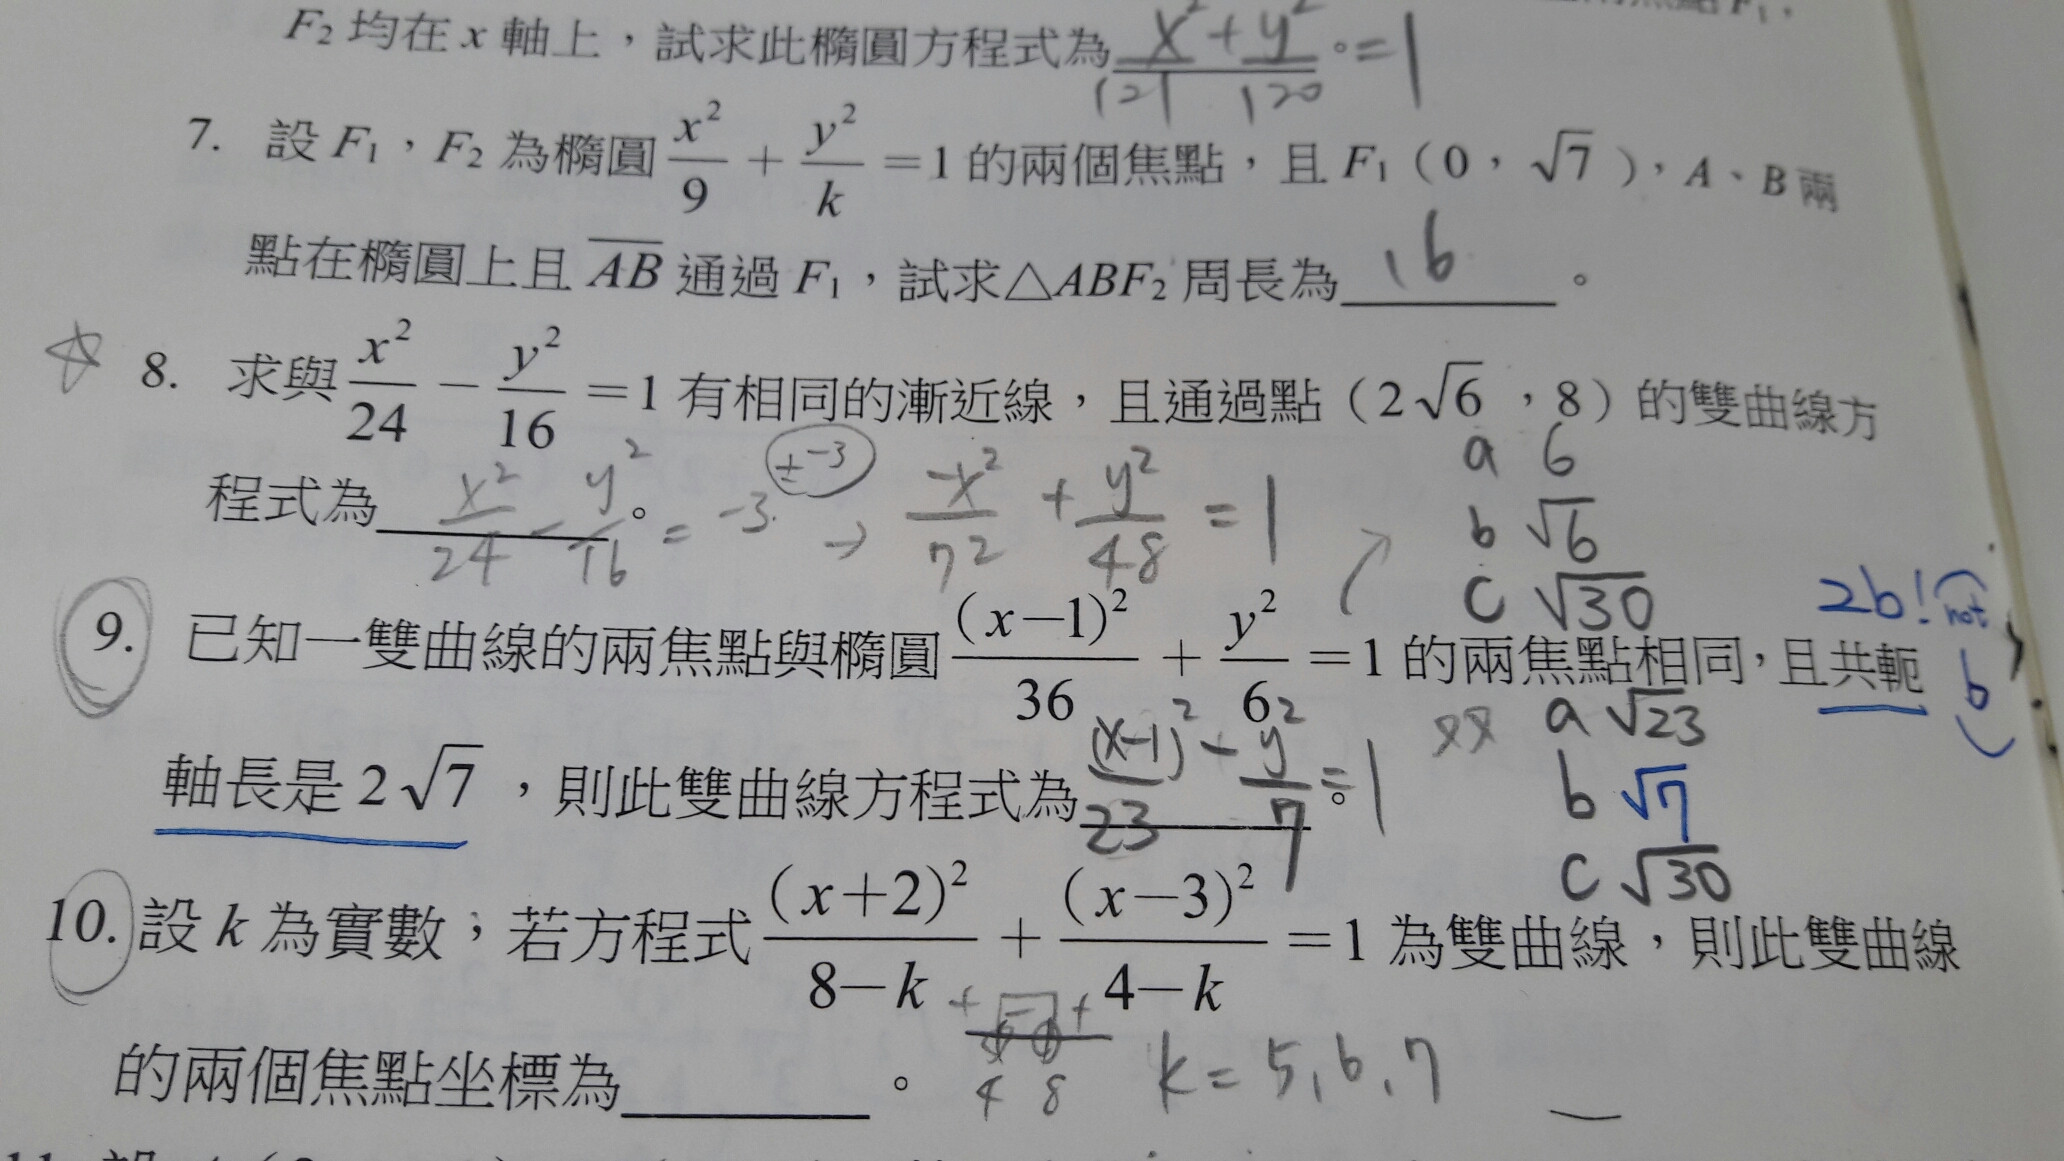 F₂ 均在 x 軸上，試求此橢圓方程式為 x²/121 + y²/120 。=1
7. 設 F₁，F₂ 為橢圓 x²/9 + y²/k =1 的兩個焦點，且 F₁（0，√7），A、B 兩
點在橢圓上且 AB 通過 F₁，試求△ABF₂ 周長為 16 。
☆ 8. 求與 x²/24 − y²/16 =1 有相同的漸近線，且通過點（2√6，8）的雙曲線方
程式為 x²/24 − y²/16 。= -3 ±-3 → -x²/72 + y²/48 = 1
a 6
b √6
c √30
9. 已知一雙曲線的兩焦點與橢圓 (x−1)²/36 + y²/6 =1 的兩焦點相同，且共軛
2b! (not b)
軸長是 2√7，則此雙曲線方程式為 (x-1)²/23 - y²/7 。=1
a √23
b √7
c √30
10. 設 k 為實數；若方程式 (x+2)²/(8−k) + (x−3)²/(4−k) =1 為雙曲線，則此雙曲線
的兩個焦點坐標為 。
+ − +
4 8
k = 5, 6, 7